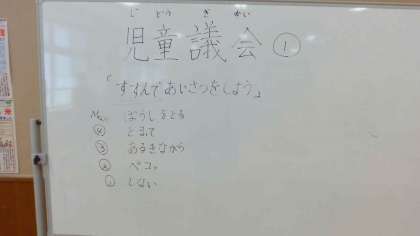 じどうぎかい
児童議会 ①
「すすんであいさつをしよう」
ぼうしをとる
④ とまって
③ あるきながら
② ペコッ
① しない